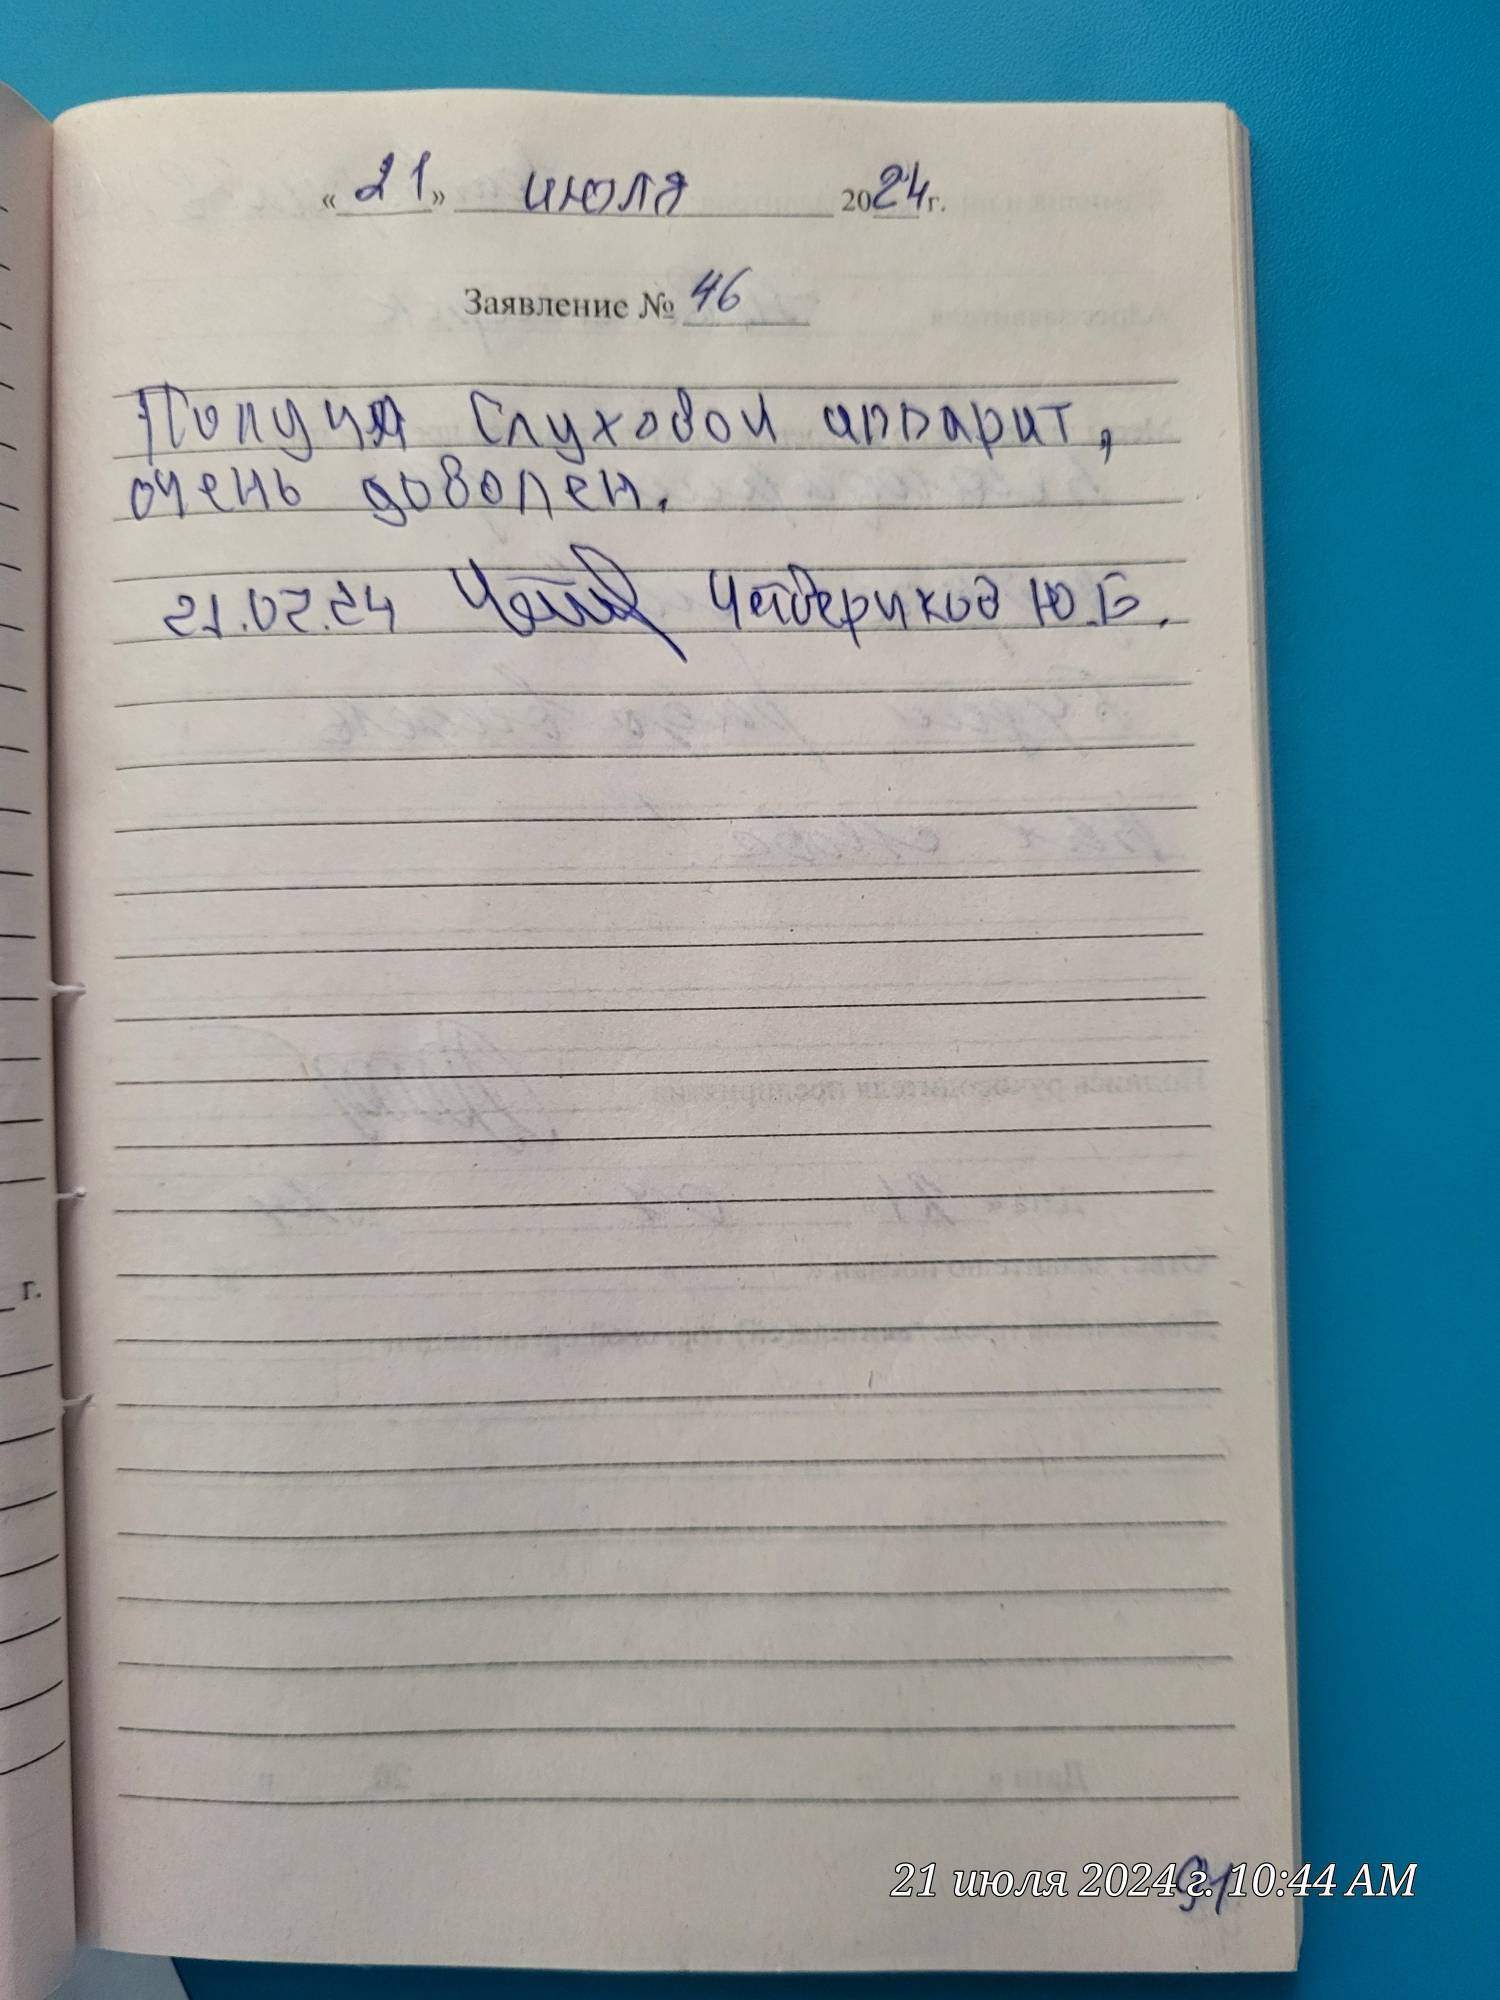 « 21 » июля 2024 г.
Заявление № 46
Получил Слуховой аппарат,
очень доволен.
21.07.24 Четвериков Ю.Б.
г.
21 июля 2024 г. 10:44 AM
91